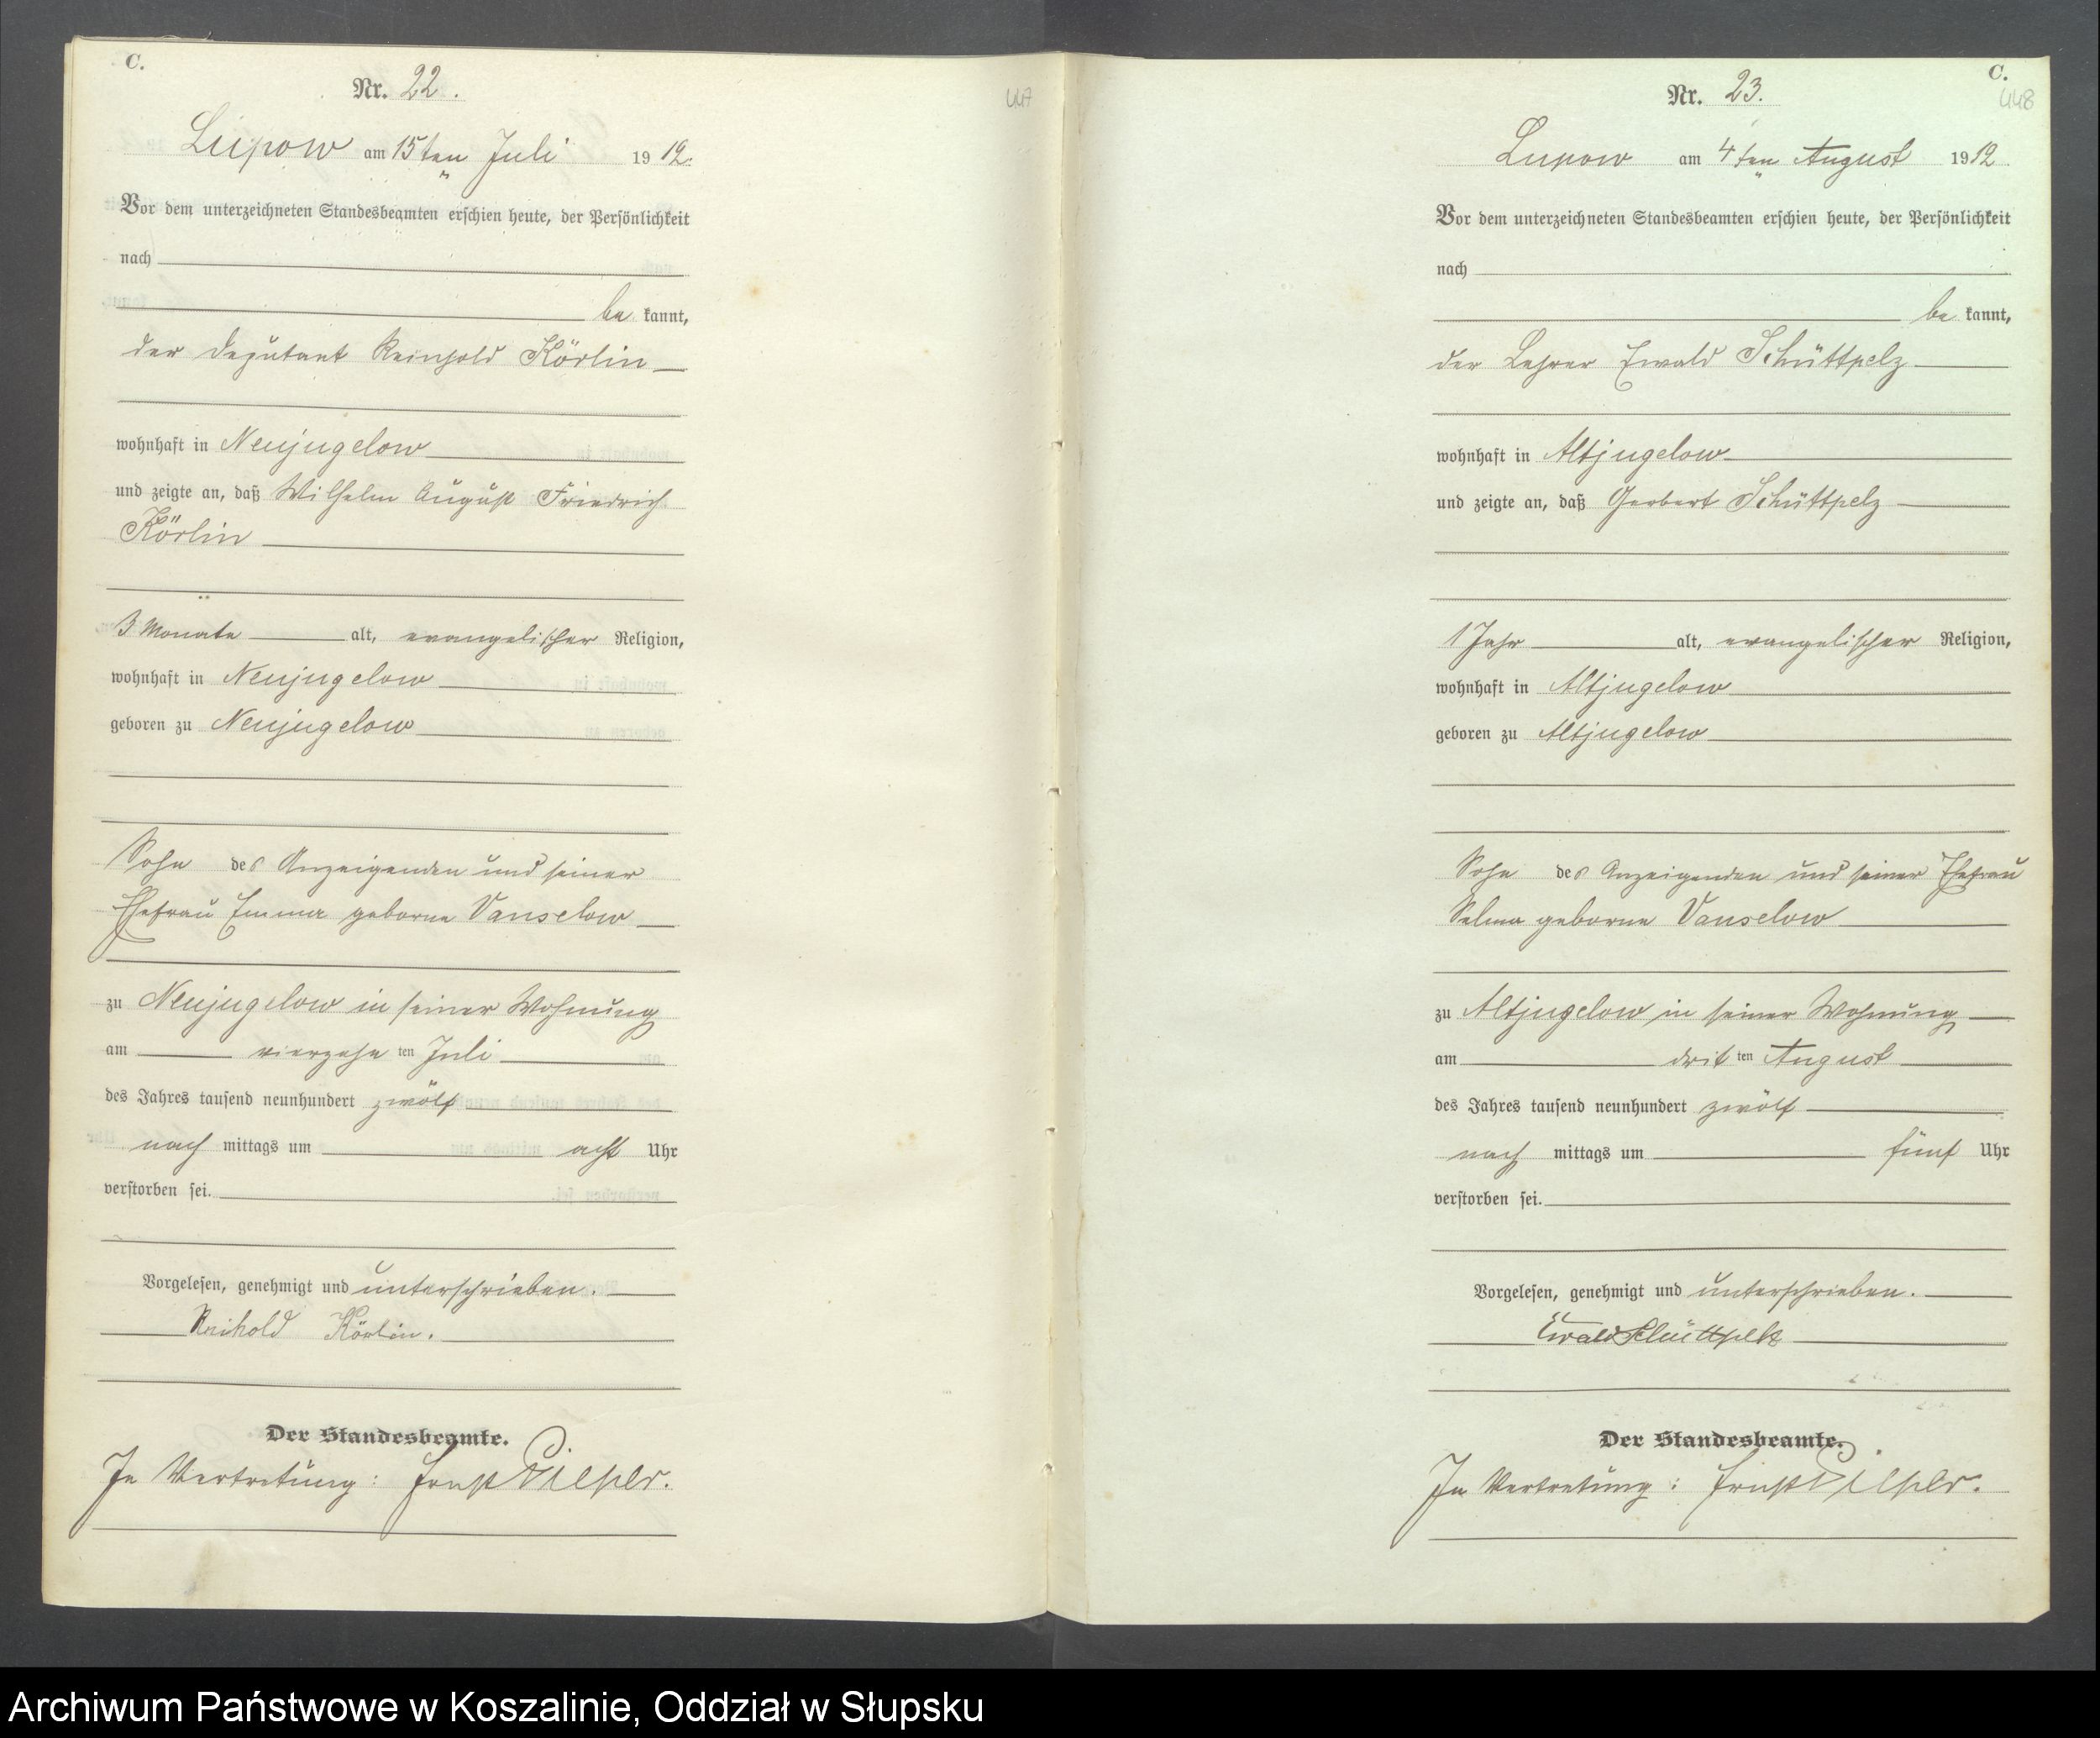 C.
Nr. 22.
Lupow am 15ten Juli 1912.
Vor dem unterzeichneten Standesbeamten erschien heute, der Persönlichkeit
nach
be kannt,
der Deputant Reinhold Körlin
wohnhaft in Neujugelow
und zeigte an, daß Wilhelm August Friedrich
Körlin
3 Monate alt, evangelischer Religion,
wohnhaft in Neujugelow
geboren zu Neujugelow
Sohn des Anzeigenden und seiner
Ehefrau Emma geborne Vanselow
zu Neujugelow in seiner Wohnung
am vierzehn ten Juli
des Jahres tausend neunhundert zwölf
nach mittags um acht Uhr
verstorben sei.
Vorgelesen, genehmigt und unterschrieben.
Reihold Körlin.
Der Standesbeamte.
In Vertretung: Ernst
447
C.
448
Nr. 23.
Lupow am 4ten August 1912
Vor dem unterzeichneten Standesbeamten erschien heute, der Persönlichkeit
nach
be kannt,
der Lehrer Ewald Schüttpelz
wohnhaft in Altjugelow
und zeigte an, daß Gerbert Schüttpelz
1 Jahr alt, evangelischer Religion,
wohnhaft in Altjugelow
geboren zu Altjugelow
Sohn des Anzeigenden und seiner Ehefrau
Selma geborne Vanselow
zu Altjugelow in seiner Wohnung
am drit ten August
des Jahres tausend neunhundert zwölf
nach mittags um fünf Uhr
verstorben sei.
Vorgelesen, genehmigt und unterschrieben.
Ewald Schüttpelz
Der Standesbeamte.
In Vertretung: Ernst
Archiwum Państwowe w Koszalinie, Oddział w Słupsku